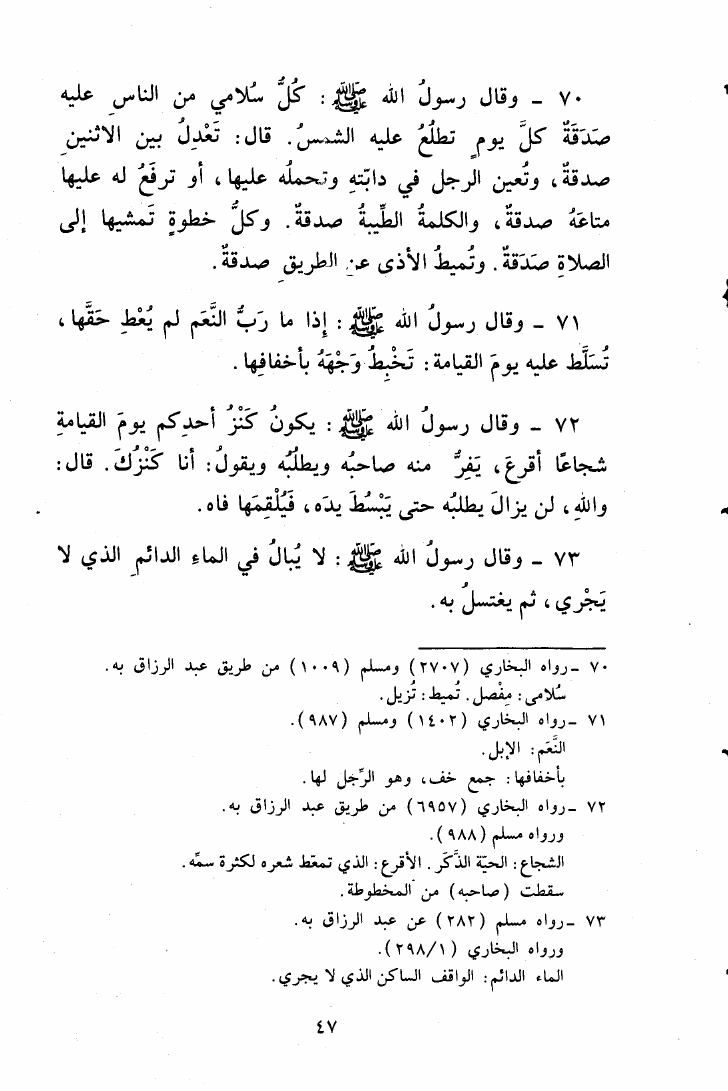 ٧٠ - وقال رسولُ الله ﷺ: كُلُّ سُلامي من الناسِ عليه
صَدَقَةٌ كلَّ يومٍ تطلُعُ عليه الشمسُ. قال: تَعْدِلُ بين الاثنينِ
صدقةٌ، وتُعين الرجل في دابّتهِ وتحملُه عليها، أو ترفَعُ له عليها
متاعَهُ صدقةٌ، والكلمةُ الطِّيبةُ صدقةٌ. وكلُّ خطوةٍ تَمشيها إلى
الصلاةِ صَدَقةٌ. وتُميطُ الأذى عن الطريقِ صدقةٌ.
٧١ - وقال رسولُ الله ﷺ: إذا ما رَبُّ النَّعَم لم يُعْطِ حَقَّها،
تُسَلَّط عليه يومَ القيامة: تَخْبِطُ وَجْهَهُ بأخفافِها.
٧٢ - وقال رسولُ الله ﷺ: يكونُ كَنْزُ أحدِكم يومَ القيامةِ
شجاعًا أقرعَ، يَفِرُّ منه صاحبُه ويطلبُه ويقولُ: أنا كَنْزُكَ. قال:
واللهِ، لن يزالَ يطلبُه حتى يَبْسُطَ يدَه، فَيُلْقِمَها فاه.
٧٣ - وقال رسولُ الله ﷺ: لا يُبالُ في الماءِ الدائمِ الذي لا
يَجْري، ثم يغتسلُ به.
٧٠ - رواه البخاري (٢٧٠٧) ومسلم (١٠٠٩) من طريق عبد الرزاق به.
سُلامى: مِفْصل. تُميط: تُزيل.
٧١ - رواه البخاري (١٤٠٢) ومسلم (٩٨٧).
النَّعَم: الإبل.
بأخفافها: جمع خف، وهو الرِّجل لها.
٧٢ - رواه البخاري (٦٩٥٧) من طريق عبد الرزاق به.
ورواه مسلم (٩٨٨).
الشجاع: الحيّة الذَّكَر. الأقرع: الذي تمعّط شعره لكثرة سمِّه.
سقطت (صاحبه) من المخطوطة.
٧٣ - رواه مسلم (٢٨٢) عن عبد الرزاق به.
ورواه البخاري (٢٩٨/١).
الماء الدائم: الواقف الساكن الذي لا يجري.
٤٧